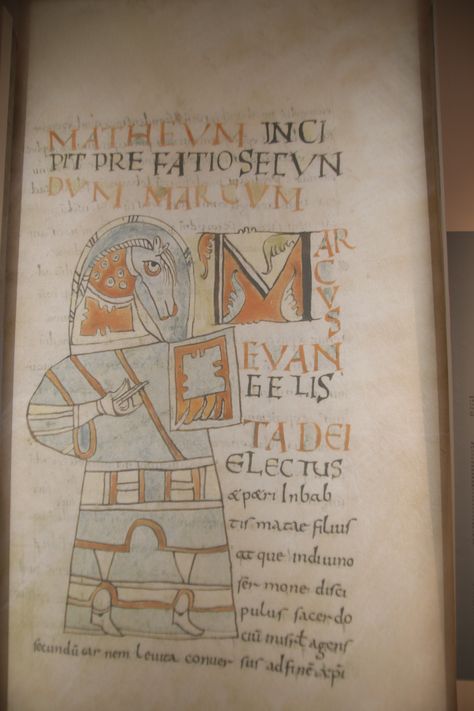 MATHEUM INCI
PIT PREFATIO SECUN
DUM MARCUM
MARCUS
EVAN
GELIS
TA DEI
ELECTUS
& p&ri In bab
tis mat&e filius
atque indiuino
sermone disci
pulus sacerdo
ciū
agens
secundū car nem leuita conuer sus adfinē &